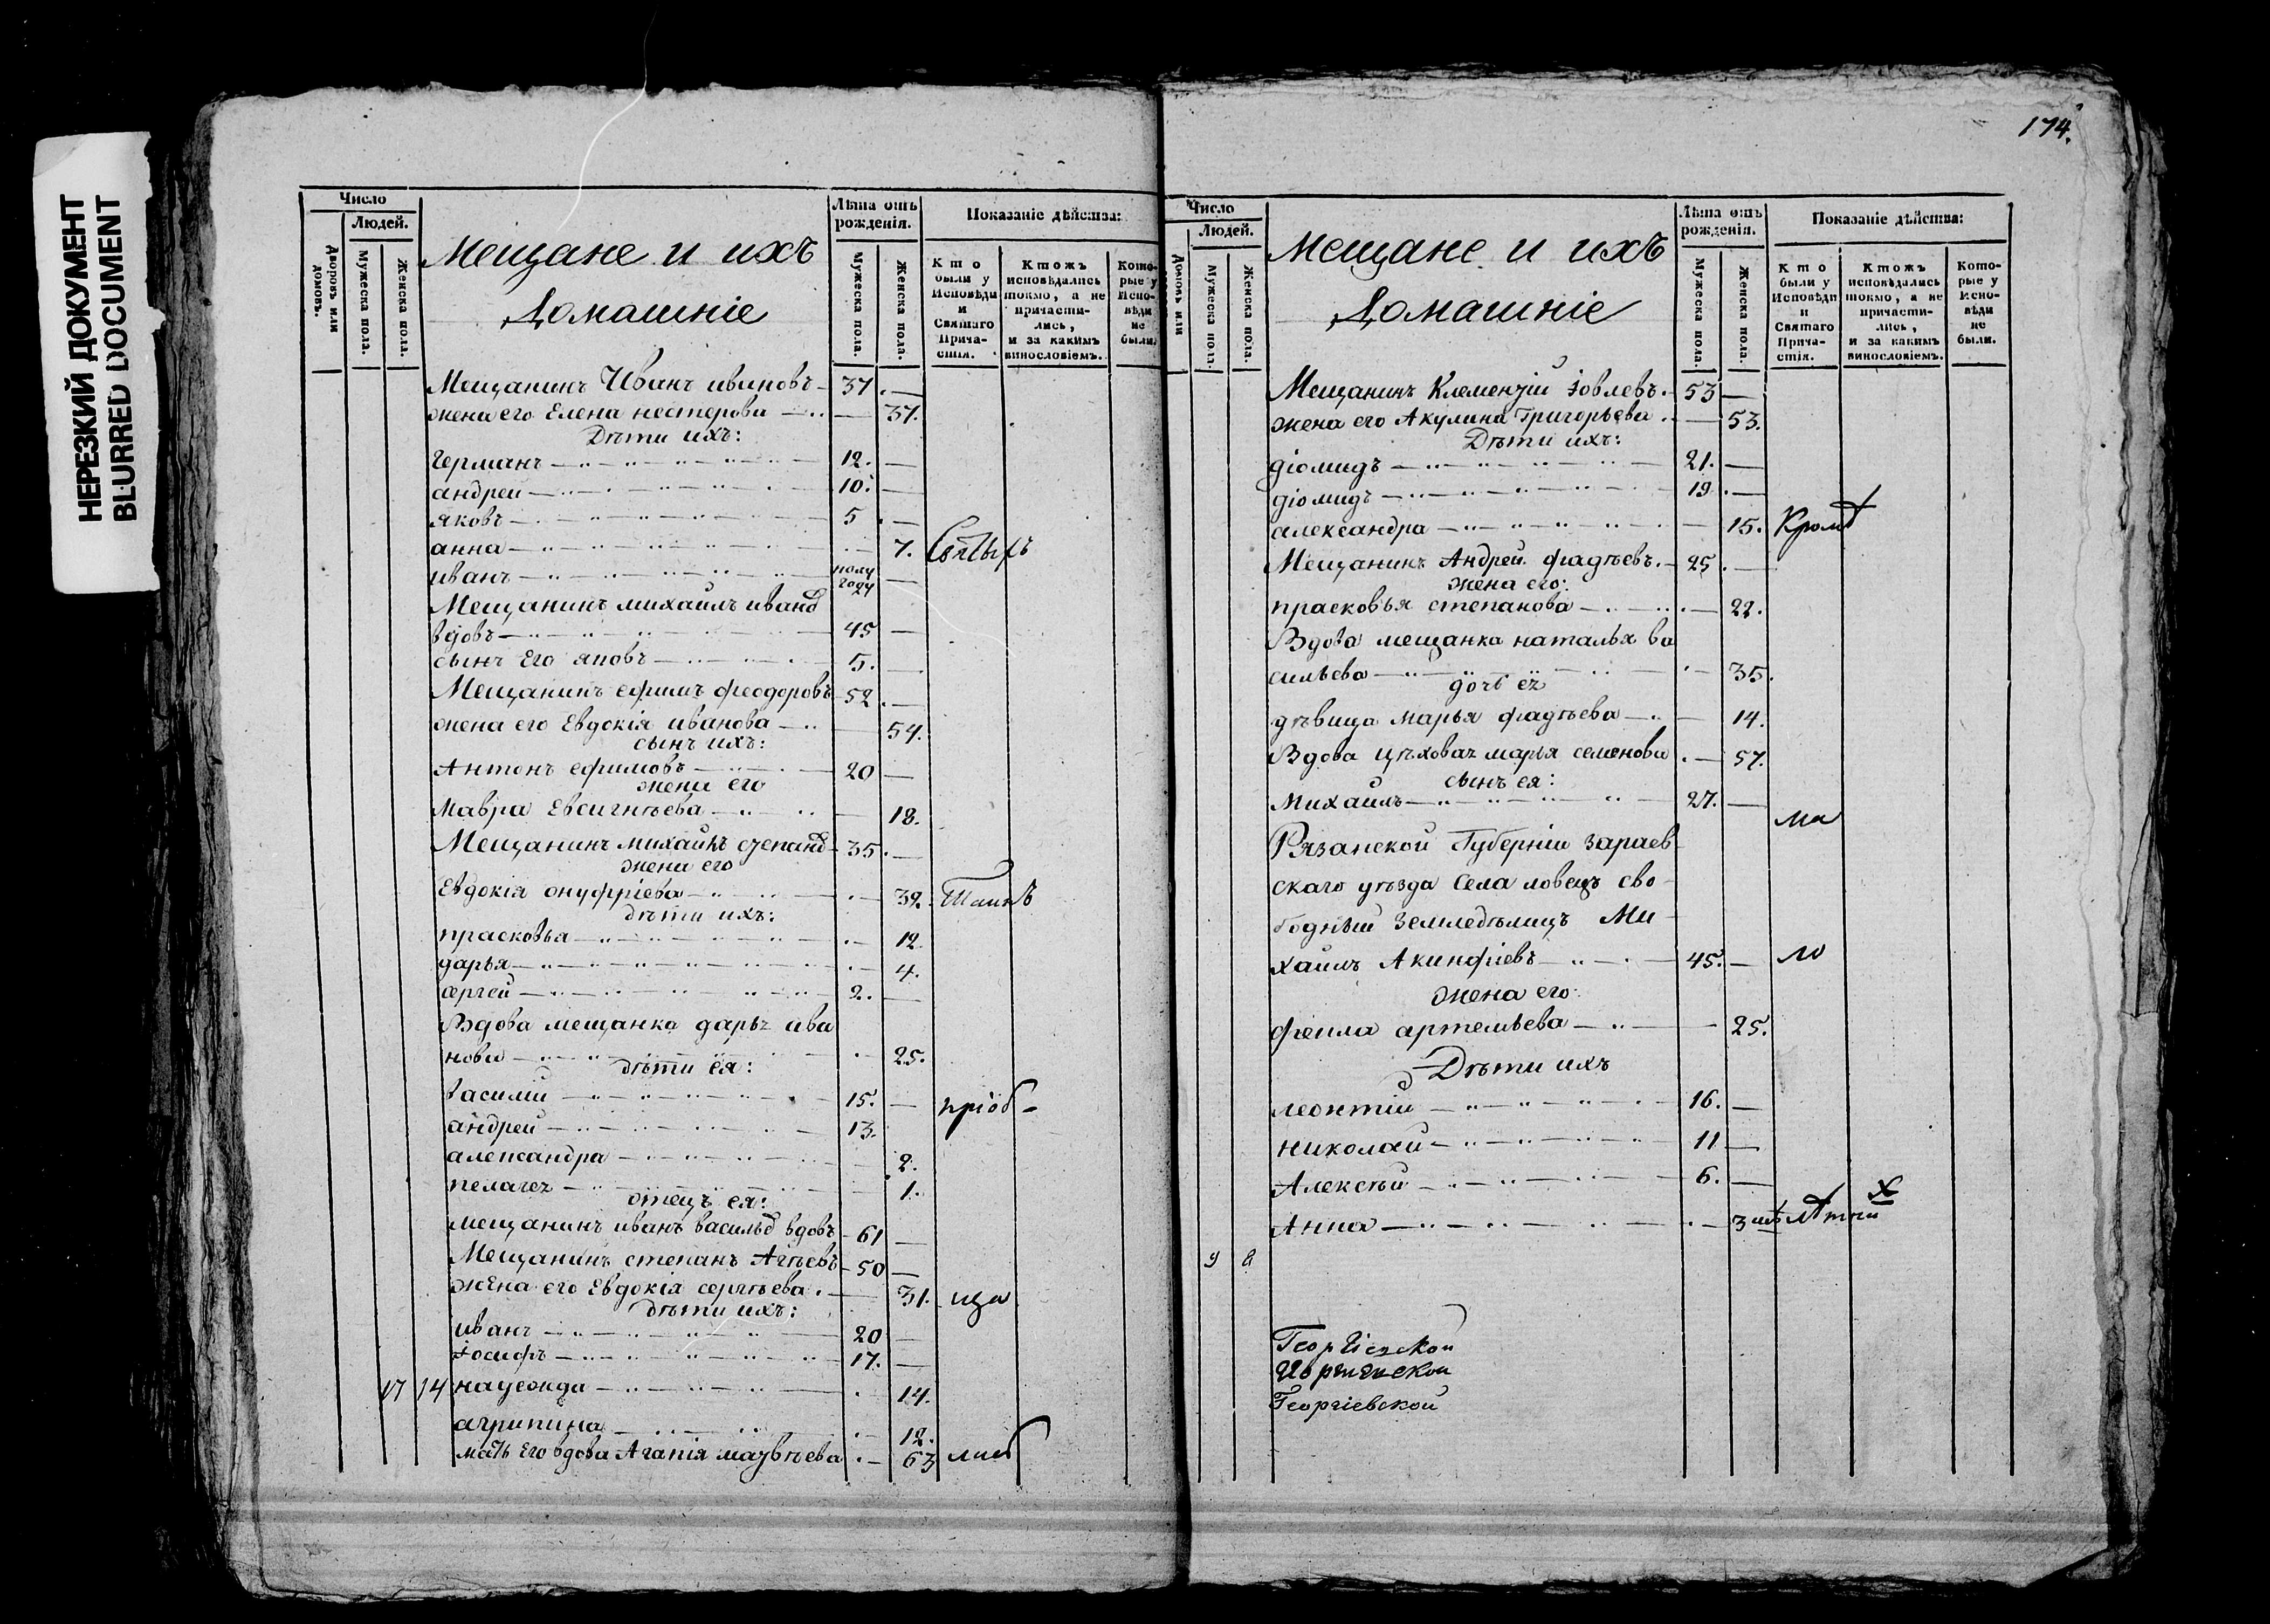 НЕРЕЗКИЙ ДОКУМЕНТ
BLURRED DOCUMENT
Число
Людей.
Дворовъ или домовъ.
Мужеска пола.
Женска пола.
Мещане и ихъ
Домашніе
Лѣта отъ рожденія.
Мужеска пола.
Женска пола.
Показаніе дѣйства:
Кто были у Исповѣди и Святаго Причастія.
Ктожъ исповѣдались токмо, а не причастились, и за какимъ винословіемъ.
Которые у Исповѣди не были.
Мещанинъ Иванъ ивановъ 37
жена его Елена нестерова 37.
Дѣти ихъ:
Германъ 12.
андрей 10.
яковъ 5
анна 7. Святыхъ
иванъ полугоду
Мещанинъ михаилъ иванов
вдовъ 45
сынъ Его яковъ 5.
Мещанинъ ефимъ феодоровъ 52
жена его Евдокія иванова 54.
сынъ ихъ:
Антонъ ефимовъ 20
жена его
Мавра Евсигнѣева 18.
Мещанинъ михаилъ степанов 35.
жена его
Евдокія онуфріева 32. Таинъ
дѣти ихъ:
прасковья 12
дарья 4.
сергей 2.
Вдова мещанка дарья ива
нова 25.
дѣти ея:
василій 15. пріоб-
андрей 13.
александра 2.
пелагея 1.
отецъ ея:
мещанинъ иванъ васильев вдовъ 61
Мещанинъ степанъ Агѣевъ 50
жена его Евдокія сергѣева 31. ща
дѣти ихъ:
иванъ 20
Іосифъ 17.
17 14 14.
агрипина 12.
мать его вдова Агапія матвѣева 63 лись
174.
Число
Людей.
Домовъ или
Мужеска пола
Женска пола.
Мещане и ихъ
Домашніе
Лѣта отъ рожденія.
Мужеска пола.
Женска пола.
Показаніе дѣйства:
Кто были у Исповѣди и Святаго Причастія.
Ктожъ исповѣдались токмо, а не причастились, и за какимъ винословіемъ.
Которые у Исповѣди не были.
Мещанинъ Клементій Іовлевъ 53
жена его Акулина Григорьева 53.
Дѣти ихъ:
діомидъ 21.
діомидъ 19
александра 15. Кромѣ
Мещанинъ Андрей фадѣевъ 25
жена его:
прасковья степанова 22.
Вдова мещанка наталья ва
сильева 35.
дочь её
дѣвица марья фадѣева 14.
Вдова цѣховая марья семенова 57.
сынъ ея:
Михаилъ 27.
ма
Рязанской Губерніи зараев-
скаго уѣзда Села ловецъ сво-
бодный земледѣлецъ Ми-
хаилъ Акинфіевъ 45. ло
жена его:
фекла артемьева 25.
Дѣти ихъ
леонтій 16.
николай 11
Алексѣй 6.
Анна 3 лѣтнихъ
9 8
Георгіевской
Георгіевской